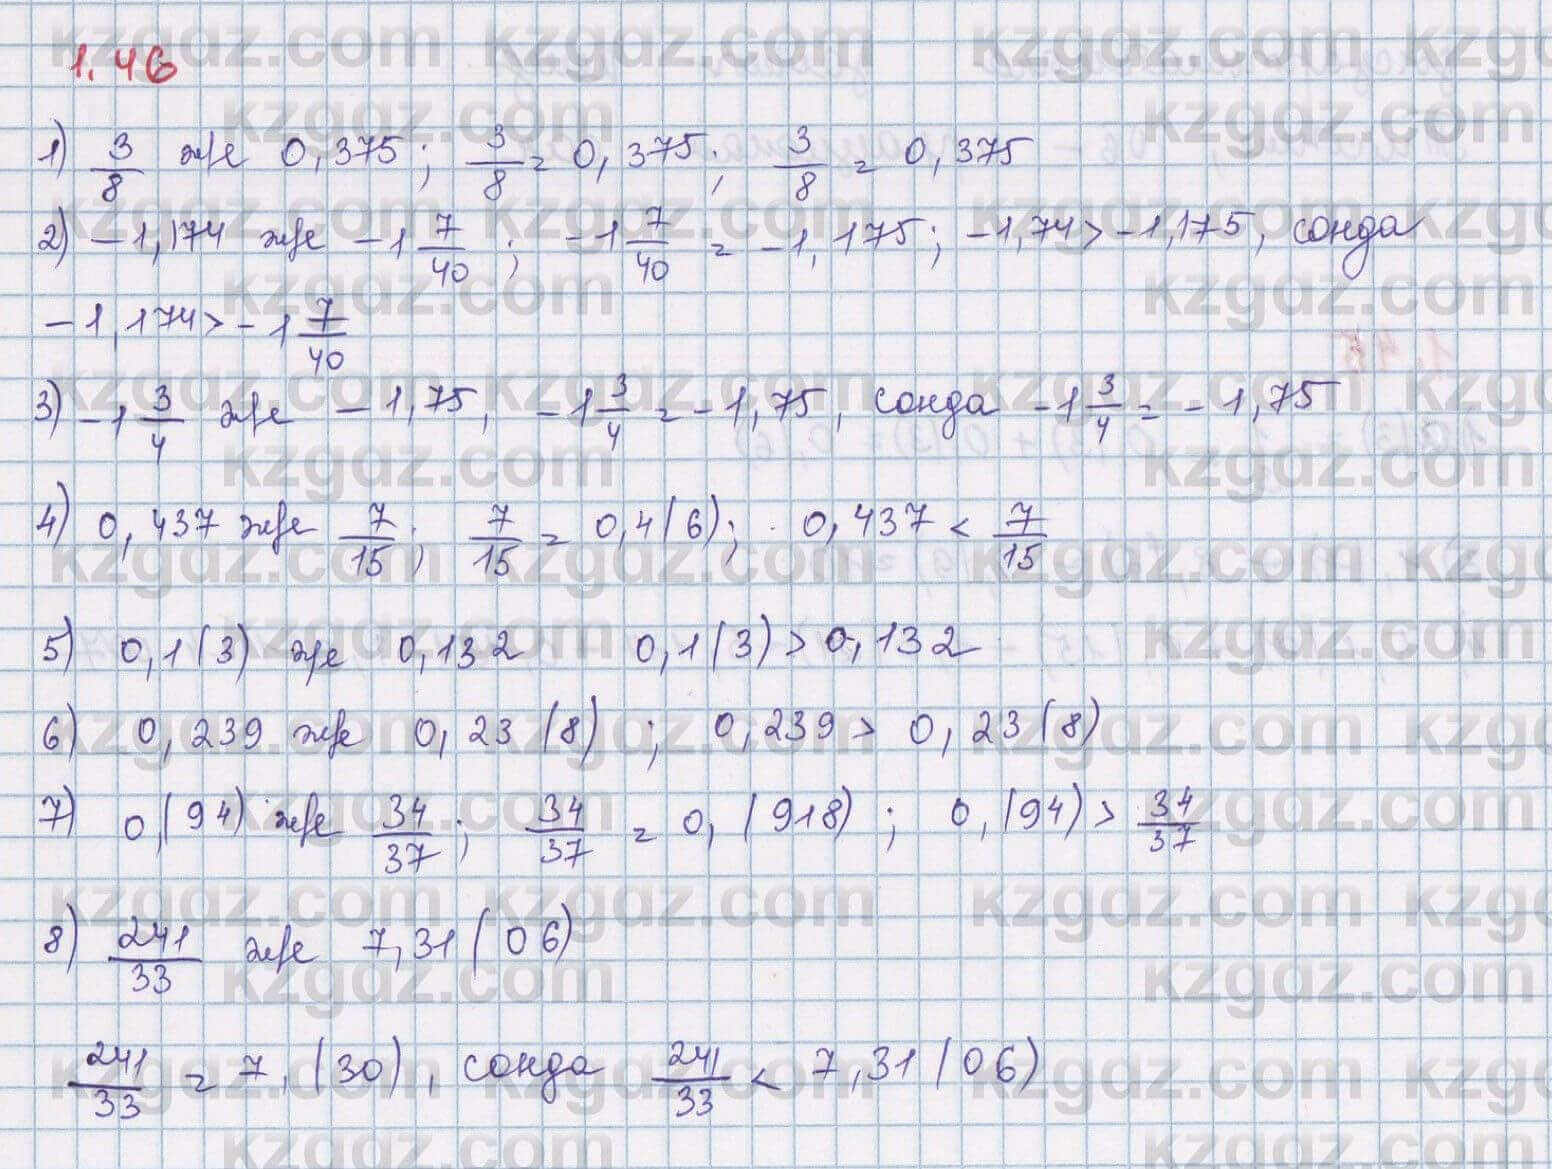 1.46
1) 3/8 және 0,375; 3/8 = 0,375; 3/8 = 0,375
2) -1,174 және -1 7/40; -1 7/40 = -1,175; -1,74 > -1,175, сонда
-1,174 > -1 7/40
3) -1 3/4 және -1,75, -1 3/4 = -1,75, сонда -1 3/4 = -1,75
4) 0,437 және 7/15; 7/15 = 0,4(6); 0,437 < 7/15
5) 0,1(3) және 0,132 0,1(3) > 0,132
6) 0,239 және 0,23(8); 0,239 > 0,23(8)
7) 0,(94) және 34/37; 34/37 = 0,(918); 0,(94) > 34/37
8) 241/33 және 7,31(06)
241/33 = 7,(30), сонда 241/33 < 7,31(06)
kzgdz.com